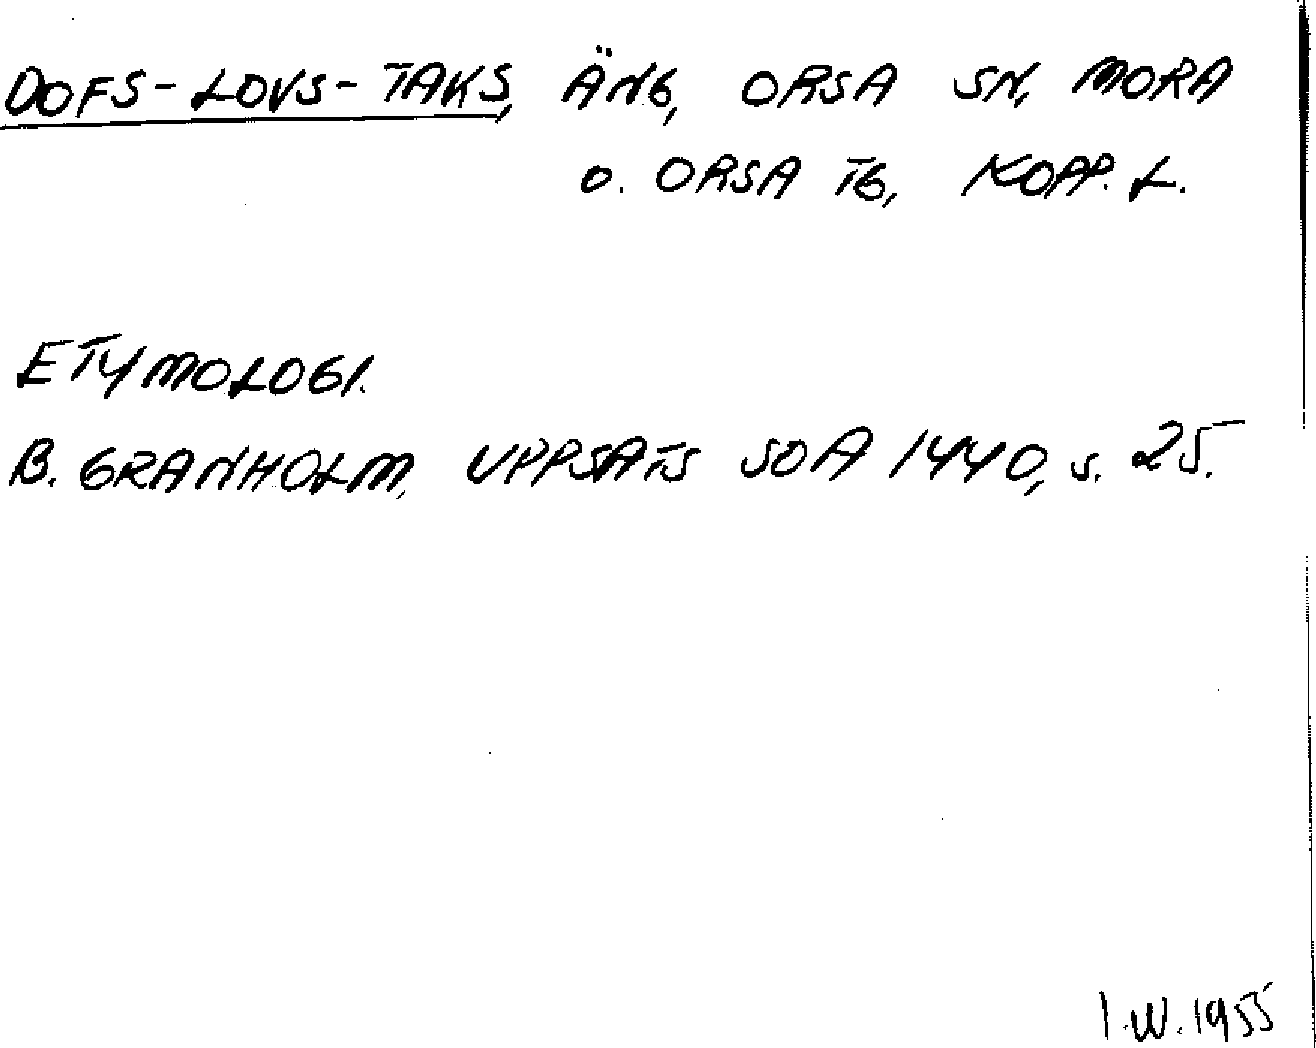 DOFS-LOVS-TAKS, ÄNG, ORSA SN, MORA
O. ORSA TG, KOPP. L.
ETYMOLOGI.
B. GRANHOLM, UPPSATS SOA 1440, S. 25.
I.W. 1955